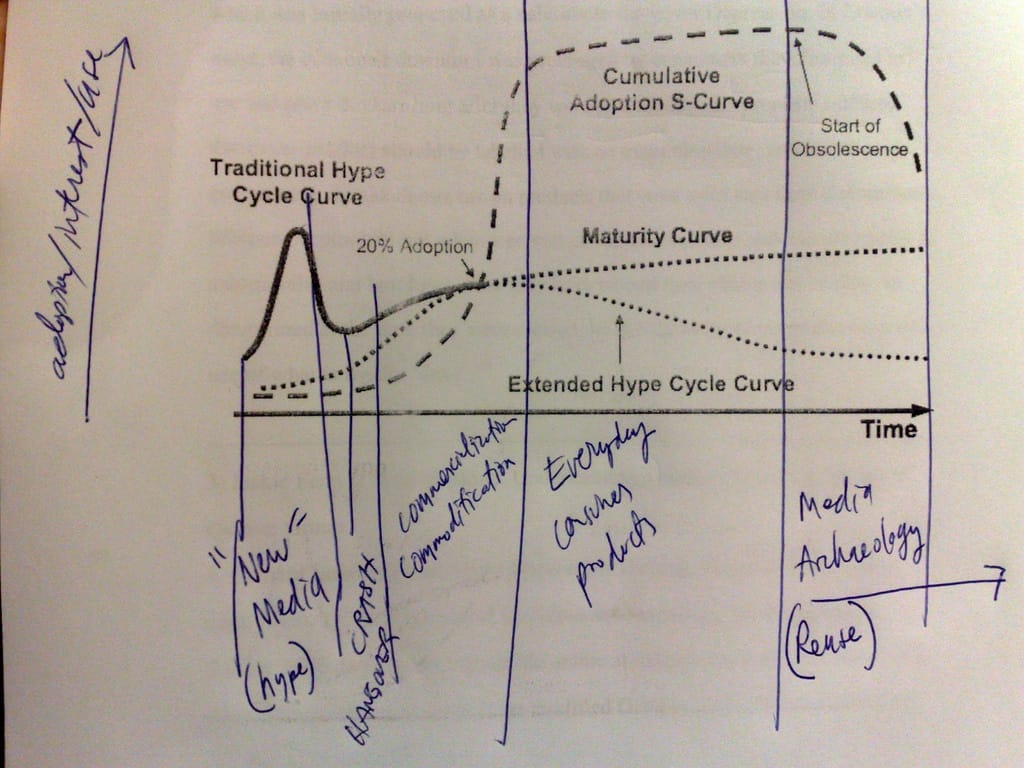 adoption/intrest/use
Cumulative
Adoption S-Curve
Start of
Obsolescence
Traditional Hype
Cycle Curve
20% Adoption
Maturity Curve
Extended Hype Cycle Curve
Time
"New"
Media
(hype)
CRASH
HANGOVER
commercialization
commodification
Everyday
consumer
products
Media
Archaeology
(Reuse)